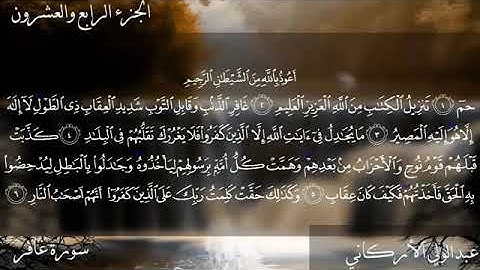 الجزء الرابع والعشرون
أعوذ بالله من الشيطان الرجيم
حمٓ ١ تَنزِيلُ ٱلْكِتَٰبِ مِنَ ٱللَّهِ ٱلْعَزِيزِ ٱلْعَلِيمِ ٢ غَافِرِ ٱلذَّنۢبِ وَقَابِلِ ٱلتَّوْبِ شَدِيدِ ٱلْعِقَابِ ذِى ٱلطَّوْلِ لَآ إِلَٰهَ
إِلَّا هُوَ إِلَيْهِ ٱلْمَصِيرُ ٣ مَا يُجَٰدِلُ فِىٓ ءَايَٰتِ ٱللَّهِ إِلَّا ٱلَّذِينَ كَفَرُوا۟ فَلَا يَغْرُرْكَ تَقَلُّبُهُمْ فِى ٱلْبِلَٰدِ ٤ كَذَّبَتْ
قَبْلَهُمْ قَوْمُ نُوحٍ وَٱلْأَحْزَابُ مِنۢ بَعْدِهِمْ وَهَمَّتْ كُلُّ أُمَّةٍۭ بِرَسُولِهِمْ لِيَأْخُذُوهُ وَجَٰدَلُوا۟ بِٱلْبَٰطِلِ لِيُدْحِضُوا۟
بِهِ ٱلْحَقَّ فَأَخَذْتُهُمْ فَكَيْفَ كَانَ عِقَابِ ٥ وَكَذَٰلِكَ حَقَّتْ كَلِمَتُ رَبِّكَ عَلَى ٱلَّذِينَ كَفَرُوٓا۟ أَنَّهُمْ أَصْحَٰبُ ٱلنَّارِ ٦
عبدالولي الأركاني
سورة غافر